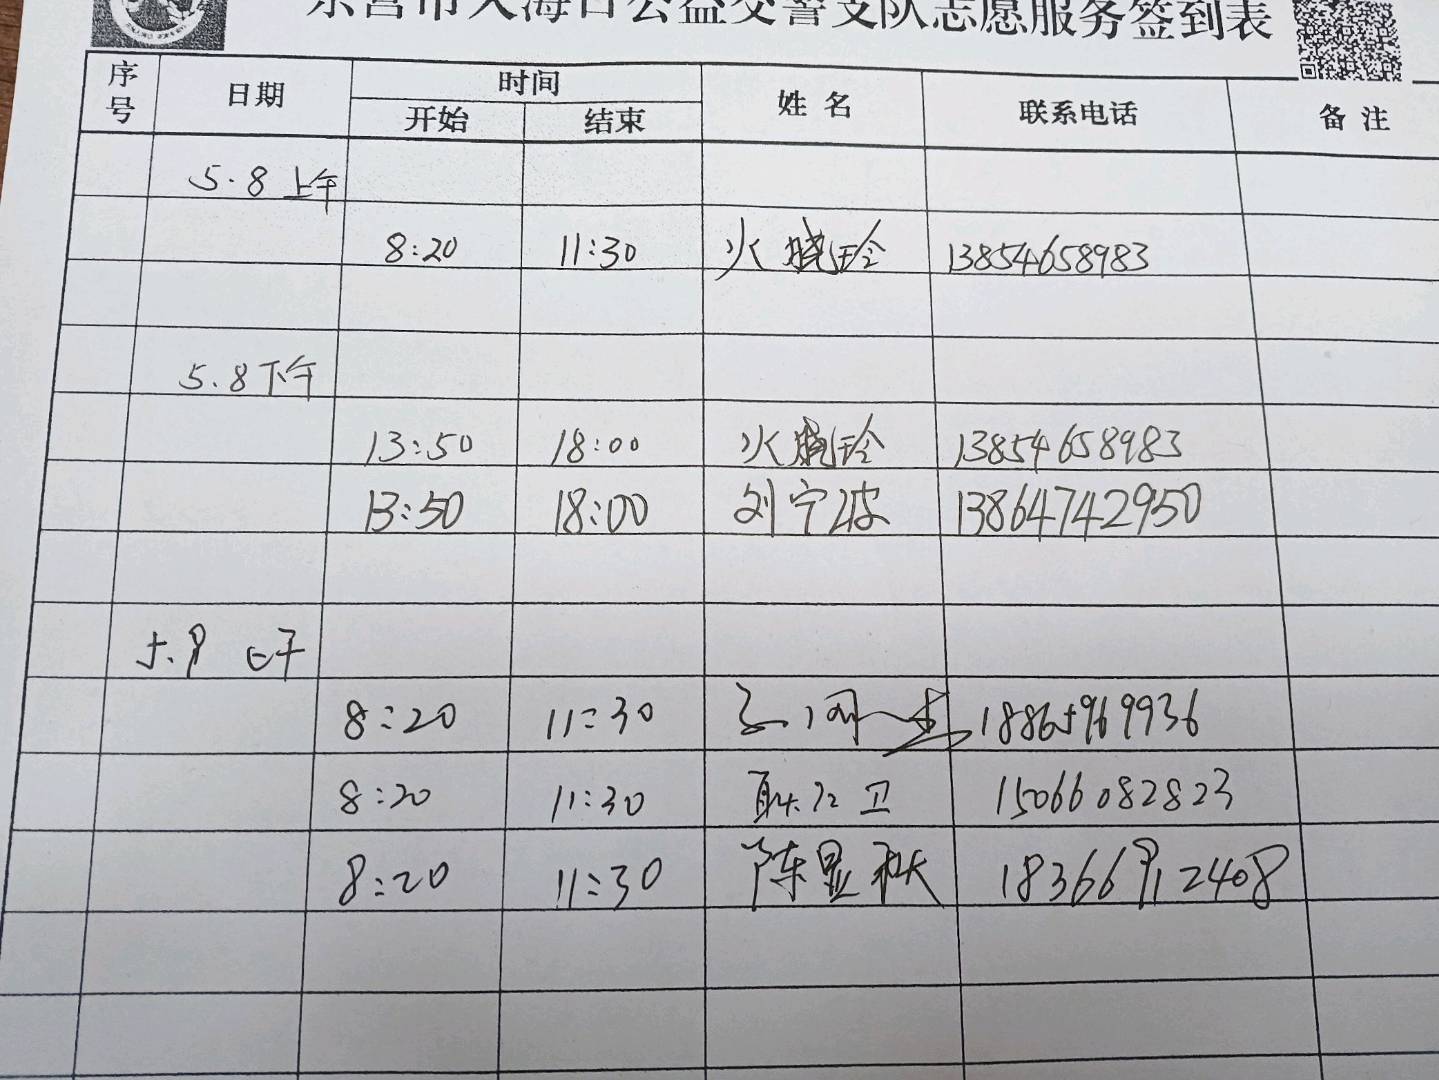 东营市大海口公益交警支队志愿服务签到表
序号 日期 时间 姓名 联系电话 备注
开始 结束
5.8 上午
8:20 11:30 火晓玲 13854658983
5.8 下午
13:50 18:00 火晓玲 13854658983
13:50 18:00 刘宁波 13864742950
5.8 上午
8:20 11:30 18865969936
8:20 11:30 卫 15066082823
8:20 11:30 陈显秋 18366912408